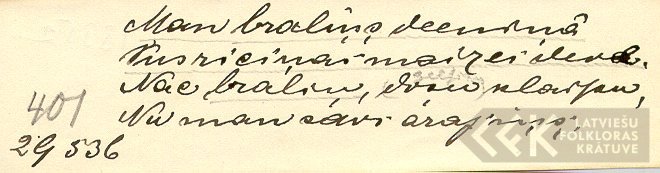 Man braliņs deeninā
Pusriciņai maizei deve.
Nac braliņ, došu klaipu,
Nu man savi arajiņi,
401
29536
LATVIEŠU
FOLKLORAS
KRĀTUVE